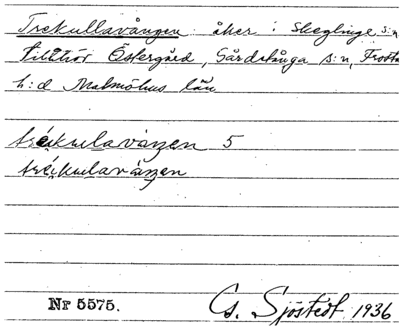 Trekullavången åker i Skeglinge s:n
tillhör Östergård, Gårdstånga s:n, Frosta
h:d Malmöhus län
trékulavaŋen 5
trèikulavàŋen
Nr 5575. G. Sjöstedt 1936